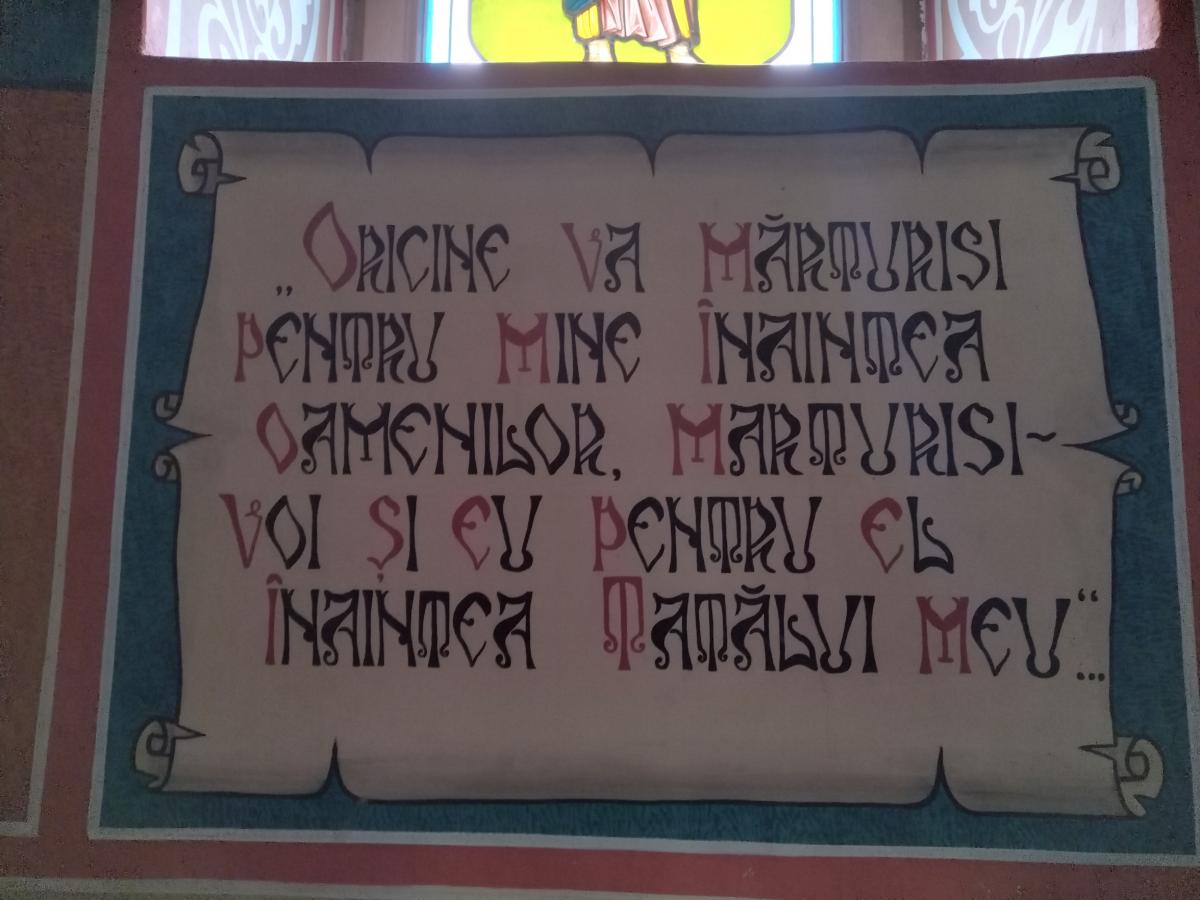 „Oricine Va Mărturisi
Pentru Mine Înaintea
Oamenilor, Marturisi~
Voi Și Eu Pentru El
Înaintea Tatălui Meu“...